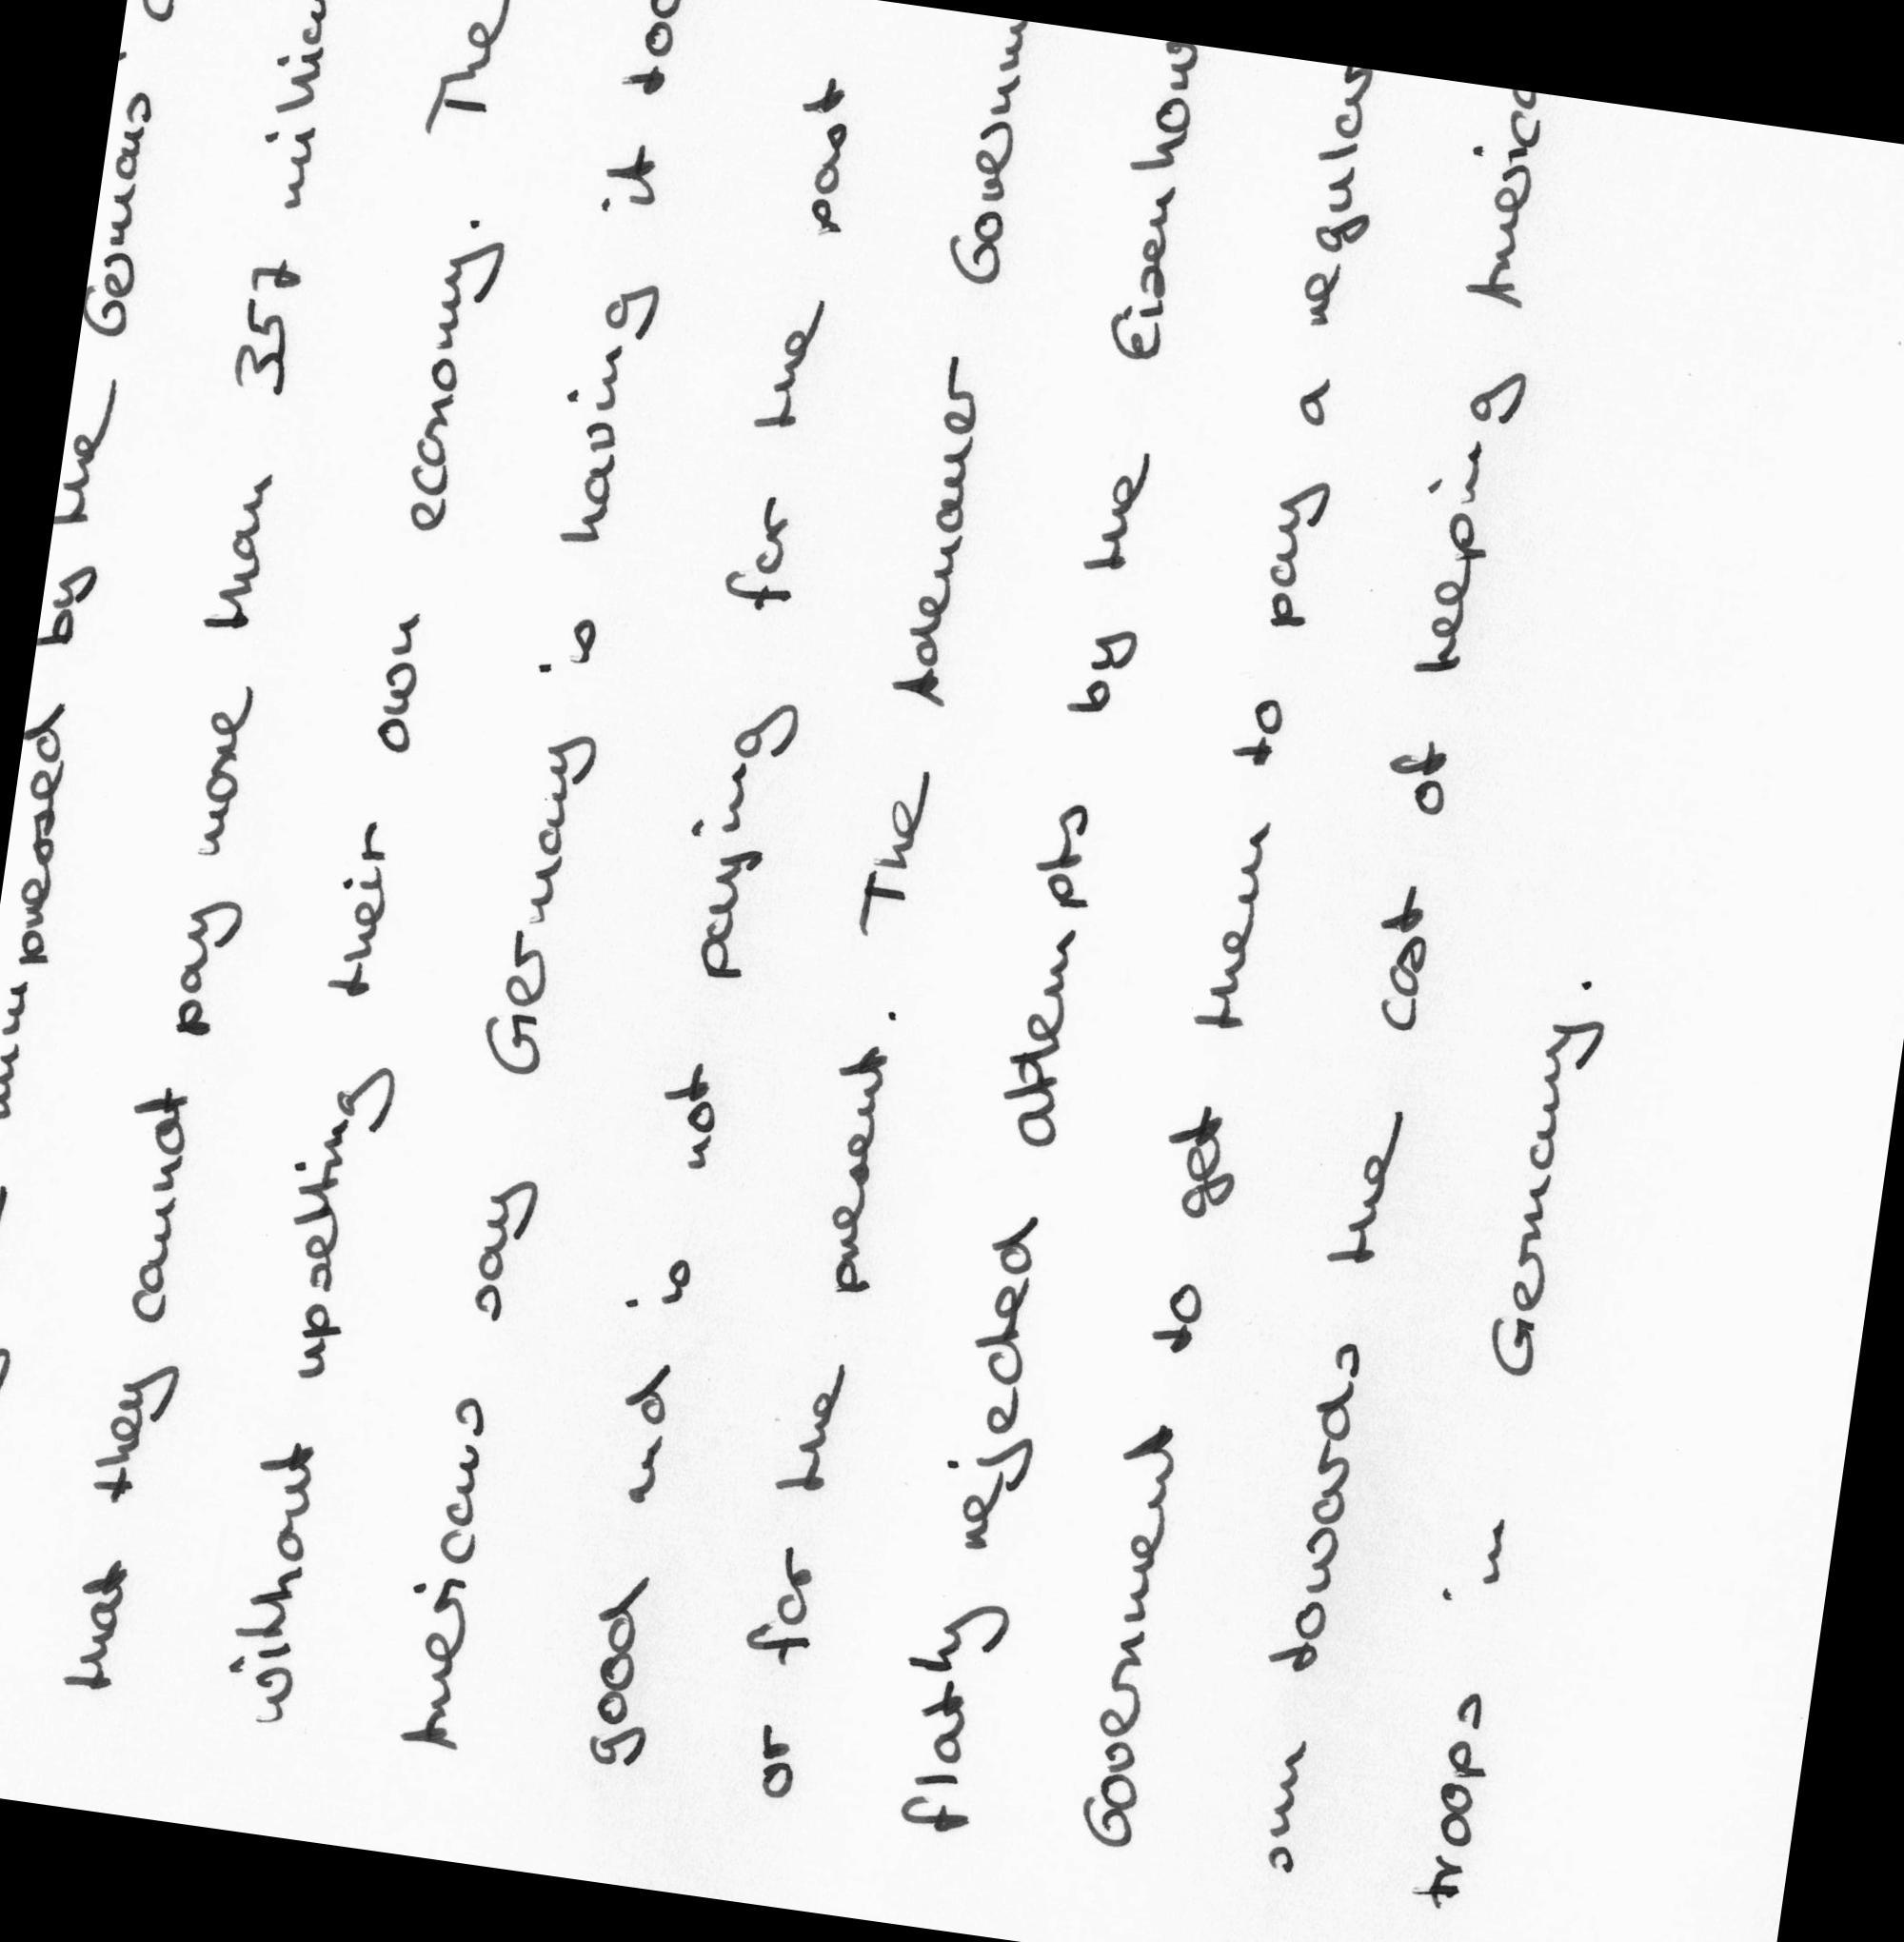 pressed by the Germans'
that they cannot pay more than 357 millio
without upsetting their own economy. The
Americans say Germany is having it too
good and is not paying for the past
or for the present. The Adenauer Governm
flatly rejected attempts by the Eisenhow
Government to get them to pay a regular
sum towards the cost of keeping America
troops in Germany.